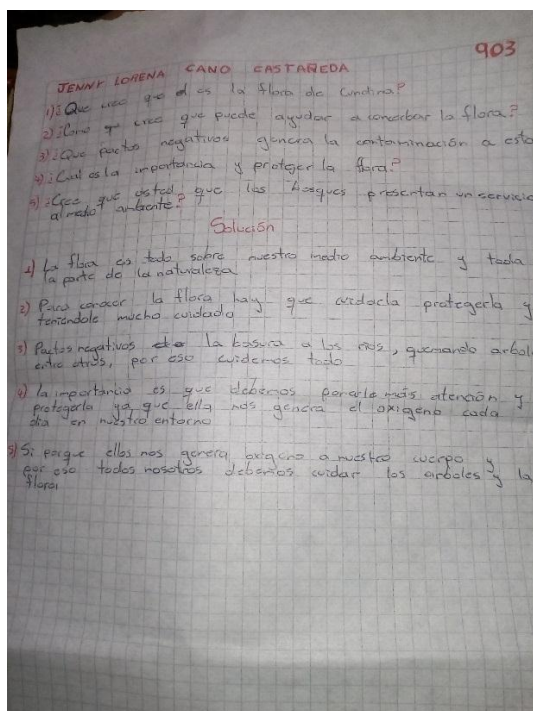 903
JENNY LORENA CANO CASTAÑEDA
1) ¿Que cree que es la flora de Cundina?
2) ¿Como cree que puede ayudar a la flora?
3) ¿Que pactos negativos genera la contaminación a esto
4) ¿Cual es la importancia y proteger la flora?
5) ¿Cree que usted que los bosques presentan un servicio
al medio ambiente?
Solución
1) La flora es todo sobre nuestro medio ambiente y toda
la parte de la naturaleza
2) Para conocer la flora hay que cuidarla protegerla y
teniendole mucho cuidado
3) Pactos negativos la basura a los rios, quemando arbol
entre otros, por eso cuidemos todo
4) la importancia es que debemos ponerle más atención y
protegerla ya que ella nos genera el oxigeno cada
dia en nuestro entorno
5) Si porque ellos nos genera oxigeno a nuestro cuerpo y
por eso todos nosotros debemos cuidar los arboles y la
flora